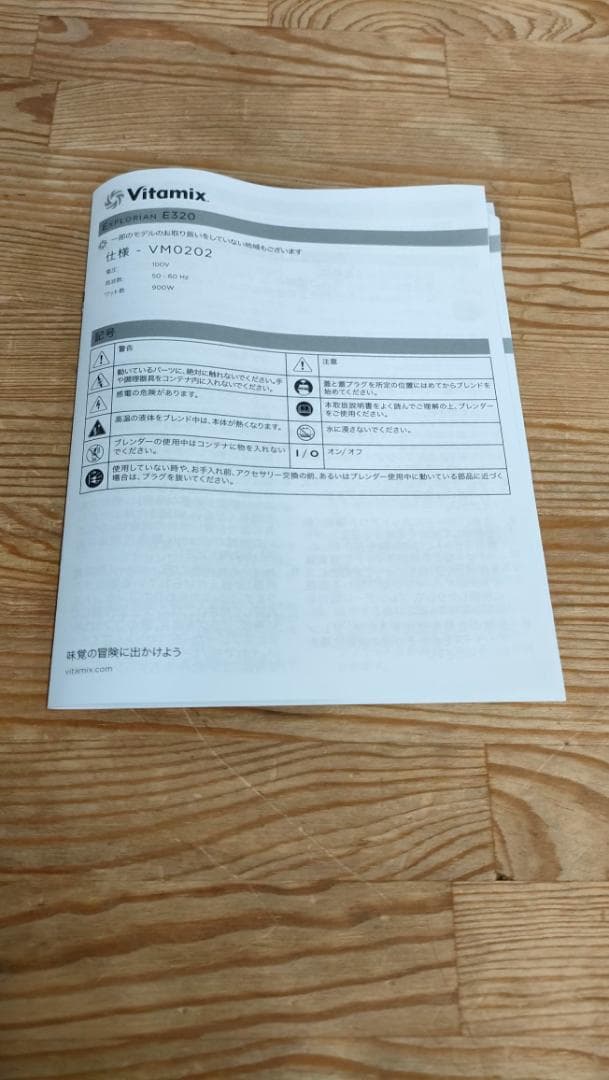 Vitamix
EXPLORIAN E320
一部のモデルのお取り扱いをしていない地域もございます
仕様 - VM0202
電圧: 100V
周波数: 50 - 60 Hz
ワット数: 900W
記号
警告
注意
動いているパーツに、絶対に触れないでください。手
や調理器具をコンテナ内に入れないでください。
蓋と蓋プラグを所定の位置にはめてからブレンドを
始めてください。
感電の危険があります。
本取扱説明書をよく読んでご理解の上、ブレンダー
をご使用ください。
高温の液体をブレンド中は、本体が熱くなります。
水に浸さないでください。
ブレンダーの使用中はコンテナに物を入れない
でください。
I / O オン/オフ
使用していない時や、お手入れ前、アクセサリー交換の前、あるいはブレンダー使用中に動いている部品に近づく
場合は、プラグを抜いてください。
味覚の冒険に出かけよう
vitamix.com